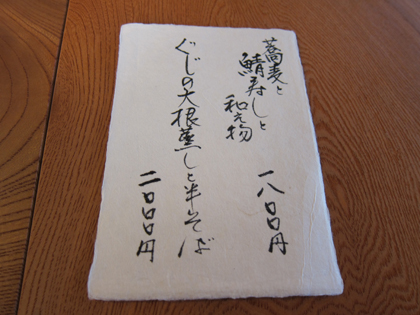 蕎麦と
鯖寿しと
和え物
一八〇〇円
ぐじの大根蒸しと半そば
二〇〇〇円